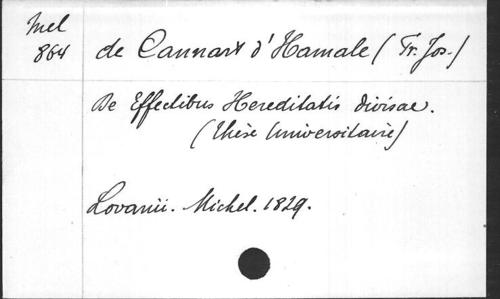 Mel
864
de Cannart d'Hamale (Fr. Jos.)
De Effectibus Hereditatis divisae.
(thèse Universitaire)
Lovanii. Michel. 1829.